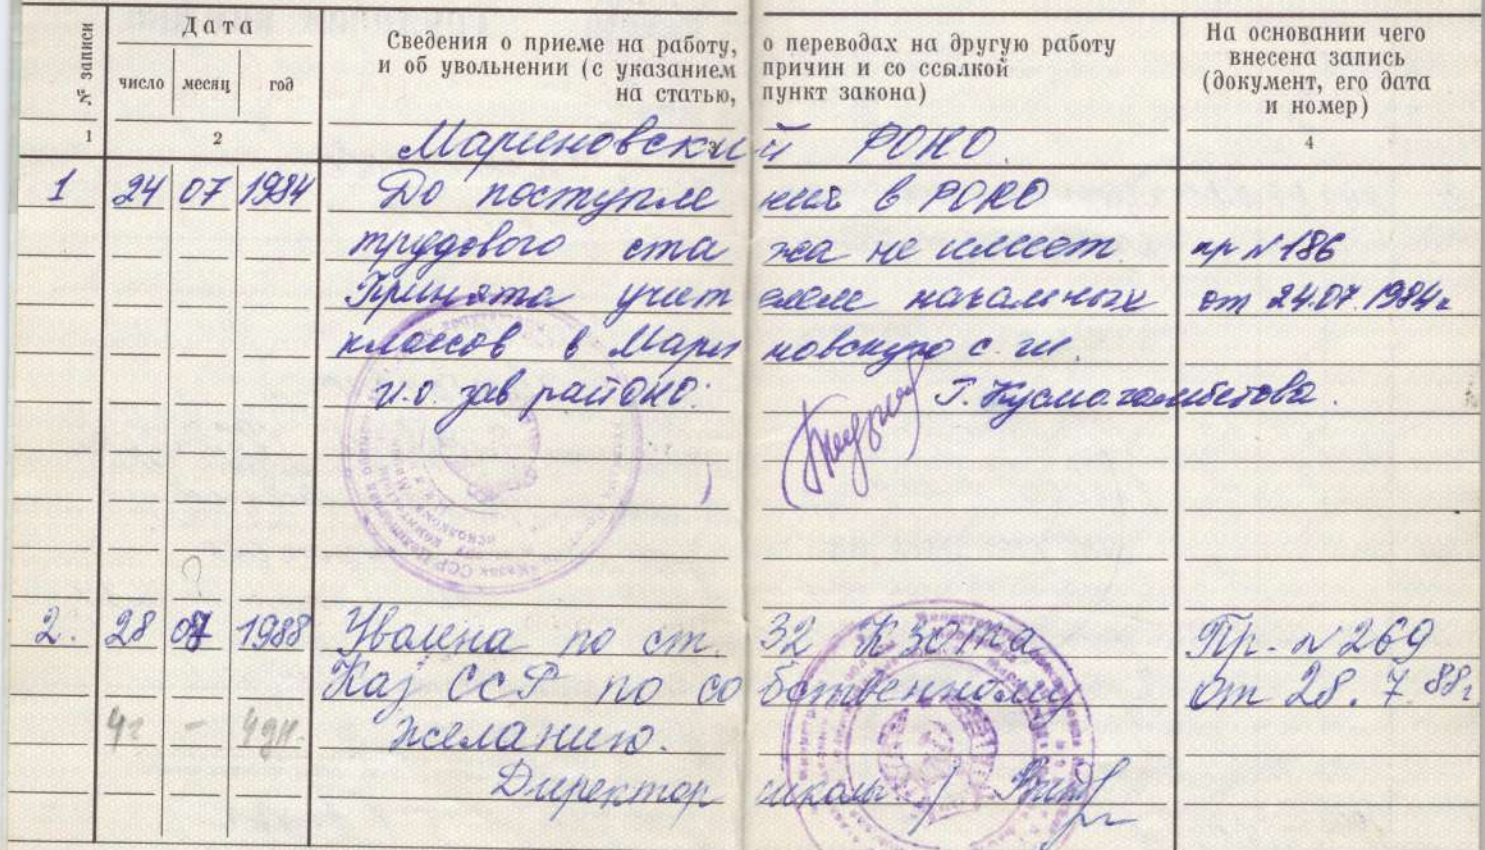 № записи
Дата
число месяц год
Сведения о приеме на работу, о переводах на другую работу
и об увольнении (с указанием причин и со ссылкой
на статью, пункт закона)
На основании чего
внесена запись
(документ, его дата
и номер)
1 2 4
Мариновский РОНО.
1 24 07 1984 До поступлений в РОНО
трудового стажа не имеет. пр №186
Принята учителем начальных от 24.07.1984г
классов в Мариновскую с. ш.
и.о. зав районо: Г. Кусмагамбетова.
2. 28 07 1988 Уволена по ст. 32 КЗоТа Пр. №269
Каз ССР по собственному от 28. 7 88г.
4г - 4дн. желанию.
Директор школы /